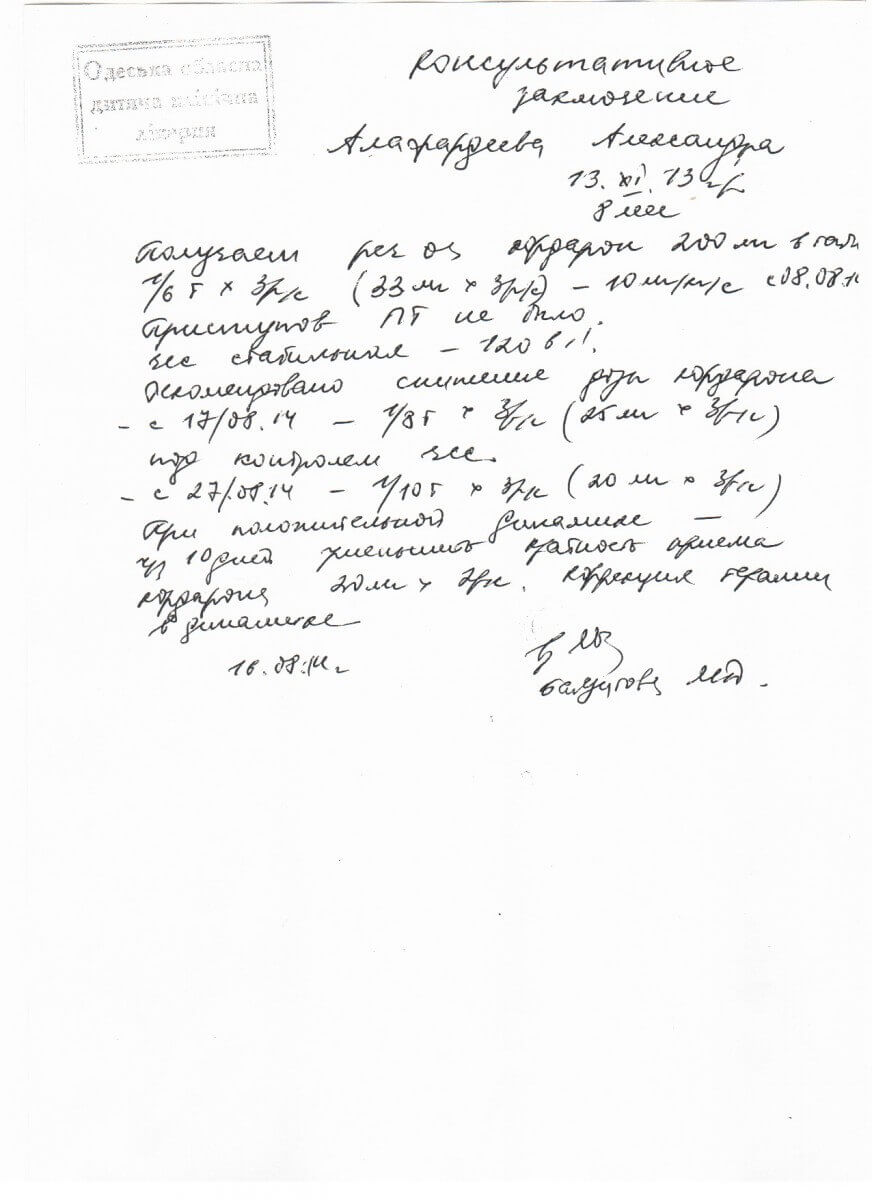 Одеська обласна
дитяча клінічна
лікарня
Консультативное
заключение
Александра
13.XI.13 г.р.
8 мес
Получает per os кордарон 200 мг в табл
1/6 т × 3 р/с (33 мг × 3 р/с) – 10 мг/кг/с с 08.08.14
Приступов ПТ не было.
ЧСС стабильная – 120 в 1'.
Рекомендовано снижение дозы кордарона
– с 17/08.14 – 1/8 т × 3 р/с (25 мг × 3 р/с)
под контролем ЧСС.
– с 27/08.14 – 1/10 т × 3 р/с (20 мг × 3 р/с)
При положительной динамике –
чз 10 дней уменьшить кратность приема
кордарона 20 мг × 2 р/с. Коррекция терапии
в динамике
16.08.14 г